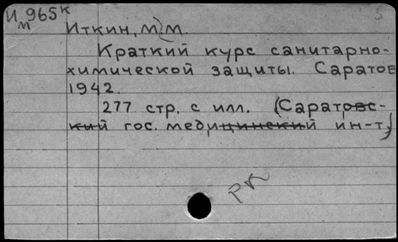 И965к
м
Иткин, М. М.
Краткий курс санитарно-
химической защиты. Саратов
1942.
277 стр. с илл. (Саратовс-
кий гос. медицинский ин-т)
РК